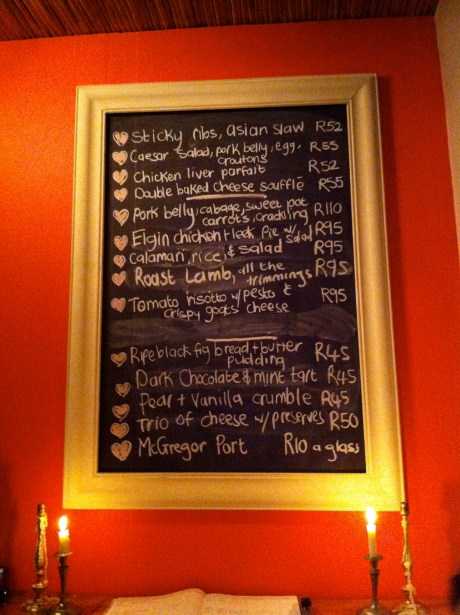 Sticky ribs, asian slaw R52
Caesar salad, pork belly, egg, R55
croutons
Chicken liver parfait R52
Double baked cheese soufflé R55
Pork belly, cabage, sweet pot R110
carrots, crackling
Elgin chicken + leek pie w/ salad R95
Calamari, rice, & salad R95
Roast Lamb, all the R95
trimmings
Tomato risotto w/ pesto & R95
crispy goats cheese
Ripe black fig bread + butter R45
pudding
Dark Chocolate & mint tart R45
Pear + Vanilla crumble R45
Trio of cheese w/ preserves R50
McGregor Port R10 a glass